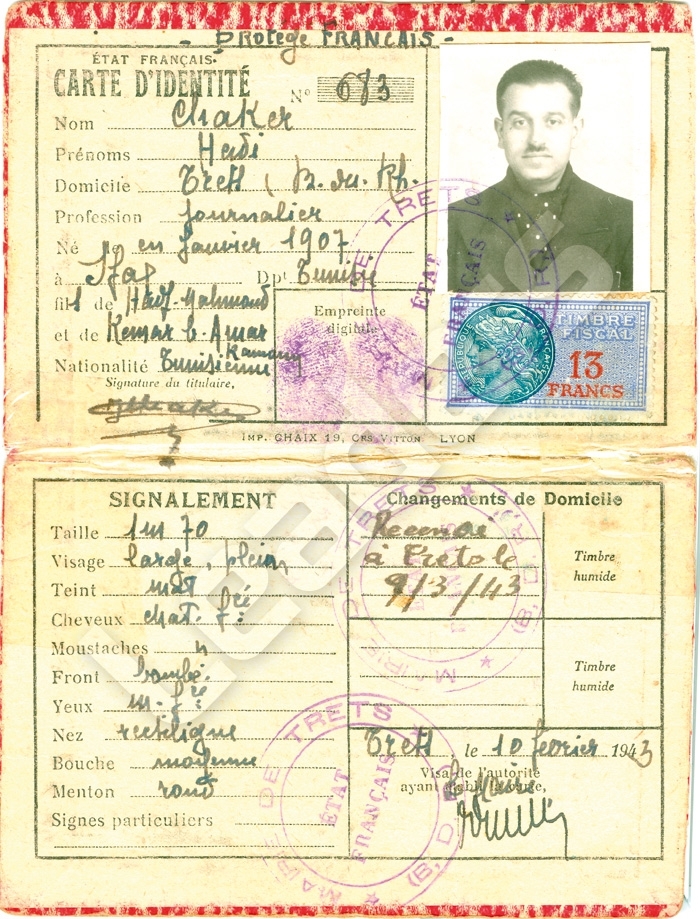 - Protégé FRANÇAIS -
ÉTAT FRANÇAIS
CARTE D'IDENTITÉ
N° 673
Nom Chaker
Prénoms Hedi
Domicile Trets (B. du. Rh.
Profession Journalier
Né en Janvier 1907
à Sfax Dpt Tunisie
fils de Mahmoud
et de b. Amar
Nationalité Tunisienne
Signature du titulaire,
Empreinte digitale
TIMBRE FISCAL
13 FRANCS
MAIRIE DE TRETS
ÉTAT FRANÇAIS
IMP. CHAIX 19, CRS VITTON LYON
SIGNALEMENT
Taille 1m70
Visage large, plein
Teint mat
Cheveux chat. fcé
Moustaches n
Front bombé
Yeux m. fcé
Nez rectiligne
Bouche moyenne
Menton rond
Signes particuliers
Changements de Domicile
à Trets le
9/3/43
Timbre humide
Timbre humide
Trets le 10 février 1943
Visa de l'autorité
ayant établi la carte,
MAIRIE DE TRETS (B. D. R.)
ÉTAT FRANÇAIS
MAIRIE DE TRETS (B. D. R.)
ÉTAT FRANÇAIS